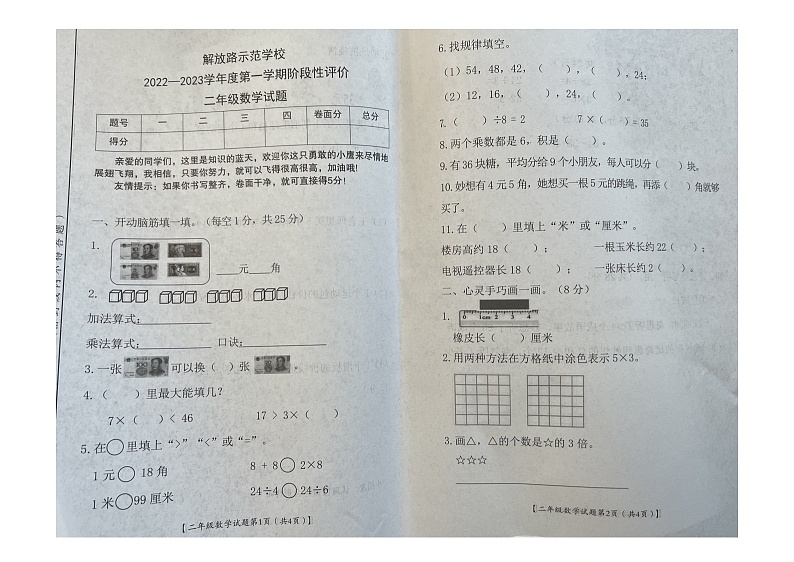 解放路示范学校
2022—2023学年度第一学期阶段性评价
二年级数学试题
题号 一 二 三 四 卷面分 总分
得分
亲爱的同学们，这里是知识的蓝天，欢迎你这只勇敢的小鹰来尽情地
展翅飞翔，我相信，只要你努力，就可以飞得很高很高，加油哦！
友情提示：如果你书写整齐，卷面干净，就可直接得5分！
一、开动脑筋填一填。（每空1分，共25分）
1.
____元____角
2.
加法算式：
乘法算式： 口诀：
3.一张 可以换（ ）张 。
4.（ ）里最大能填几？
7×（ ）< 46 17 > 3×（ ）
5.在○里填上“>”“<”或“=”。
1元○ 18角 8 + 8○ 2×8
1米○99厘米 24÷4○ 24÷6
【二年级数学试题第1页（共4页）】
6.找规律填空。
（1）54，48，42，（ ），（ ），24；
（2）12，16，（ ），24，（ ）。
7.（ ）÷8 = 2 7 ×（ ）= 35
8.两个乘数都是6，积是（ ）。
9.有36块糖，平均分给9个小朋友，每人可以分（ ）块。
10.妙想有4元5角，她想买一根5元的跳绳，再添（ ）角就够
买了。
11.在（ ）里填上“米”或“厘米”。
楼房高约18（ ）； 一根玉米长约22（ ）；
电视遥控器长18（ ）； 一张床长约2（ ）。
二、心灵手巧画一画。（8分）
1.
0 1cm 2 3 4
橡皮长（ ）厘米
2.用两种方法在方格纸中涂色表示5×3。
3.画△，△的个数是☆的3倍。
☆☆☆
【二年级数学试题第2页（共4页）】